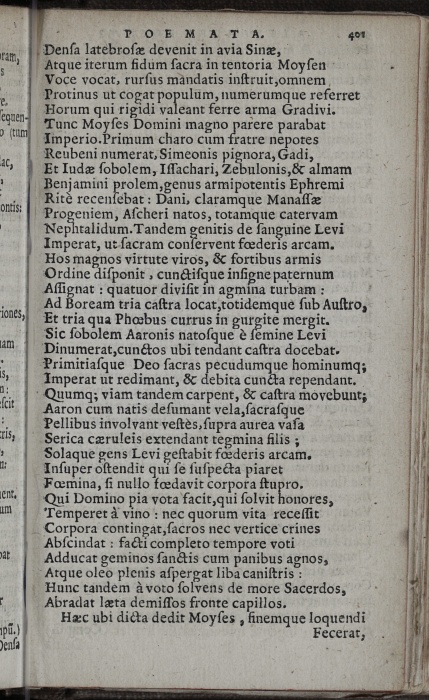 POEMATA. 401
Densa latebrosæ devenit in avia Sinæ,
Atque iterum fidum sacra in tentoria Moysen
Voce vocat, rursus mandatis instruit,omnem
Protinus ut cogat populum, numerumque referret
Horum qui rigidi valeant ferre arma Gradivi.
Tunc Moyses Domini magno parere parabat
Imperio.Primum charo cum fratre nepotes
Reubeni numerat, Simeonis pignora, Gadi,
Et Iudæ sobolem, Issachari, Zebulonis,& almam
Benjamini prolem,genus armipotentis Ephremi
Ritè recensebat : Dani, claramque Manassæ
Progeniem, Ascheri natos, totamque catervam
Nephtalidum.Tandem genitis de sanguine Levi
Imperat, ut sacram conservent fœderis arcam.
Hos magnos virtute viros, & fortibus armis
Ordine disponit , cunctisque insigne paternum
Assignat : quatuor divisit in agmina turbam :
Ad Boream tria castra locat,totidemque sub Austro,
Et tria qua Phœbus currus in gurgite mergit.
Sic sobolem Aaronis natosque è semine Levi
Dinumerat,cunctos ubi tendant castra docebat.
Primitiasque Deo sacras pecudumque hominumq;
Imperat ut redimant, & debita cuncta rependant.
Quumq; viam tandem carpent, & castra movebunt;
Aaron cum natis desumant vela,sacrasque
Pellibus involvant vestès,supra aurea vasa
Serica cæruleis extendant tegmina filis ;
Solaque gens Levi gestabit fœderis arcam.
Insuper ostendit qui se suspecta piaret
Fœmina, si nullo fœdavit corpora stupro.
Qui Domino pia vota facit,qui solvit honores,
Temperet à vino : nec quorum vita recessit
Corpora contingat,sacros nec vertice crines
Abscindat : facti completo tempore voti
Adducat geminos sanctis cum panibus agnos,
Atque oleo plenis aspergat liba canistris :
Hunc tandem à voto solvens de more Sacerdos,
Abradat læta demissos fronte capillos.
Hæc ubi dicta dedit Moyses , finemque loquendi
Fecerat,